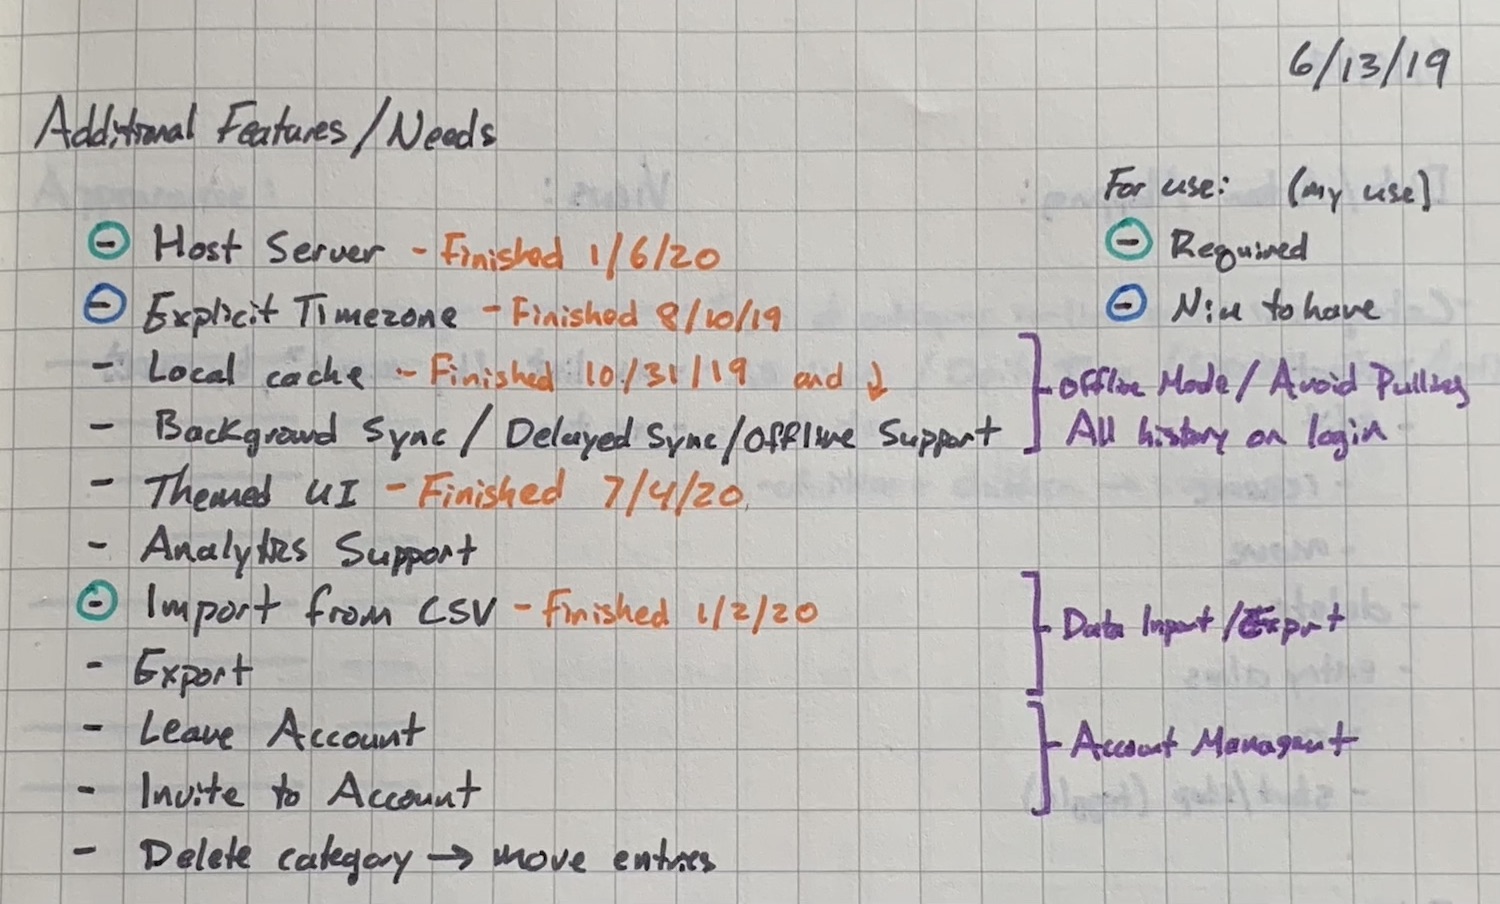 6/13/19
Additional Features/Needs
For use: (my use)
- Required
- Nice to have
- Host Server - Finished 1/6/20
- Explicit Timezone - Finished 8/10/19
- Local cache - Finished 10/31/19 and ↓
- Background Sync / Delayed Sync/Offline Support
Offline Mode / Avoid Pulling
All history on login
- Themed UI - Finished 7/4/20
- Analytics Support
- Import from CSV - Finished 1/2/20
- Export
Data Input/Export
- Leave Account
- Invite to Account
Account Managment
- Delete category → move entries